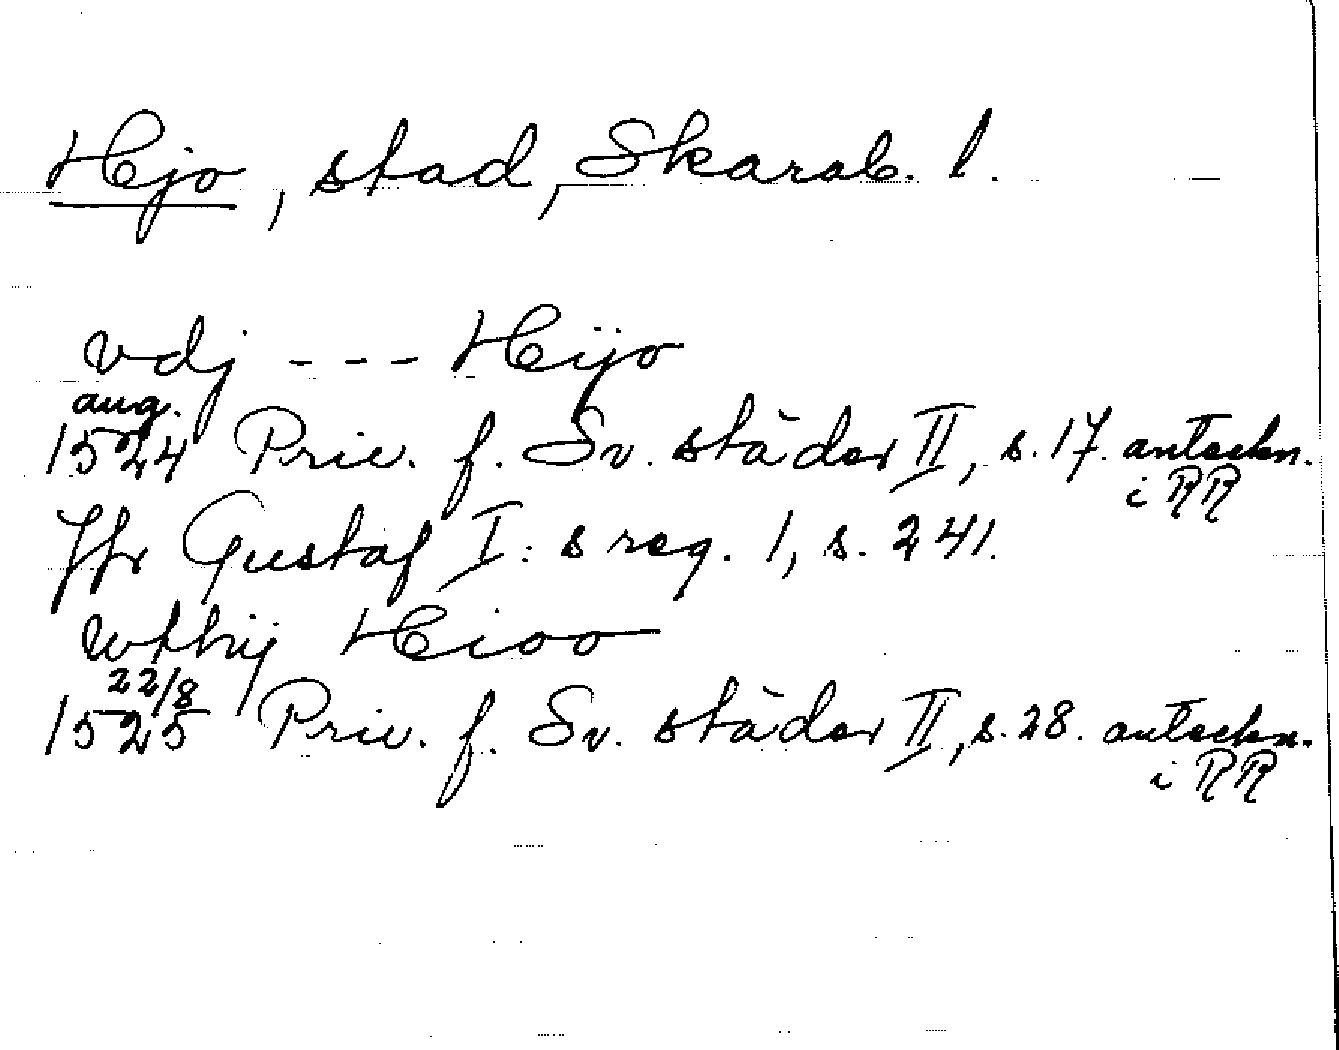 Hjo, stad, Skarab. l.
vdj --- Hijo
aug.
1524 Priv. f. Sv. städer II, s. 17. anteckn.
i RR
Jfr Gustaf I: s reg. 1, s. 241.
wthij Hioo
22/8
1525 Priv. f. Sv. städer II, s. 28. anteckn.
i RR